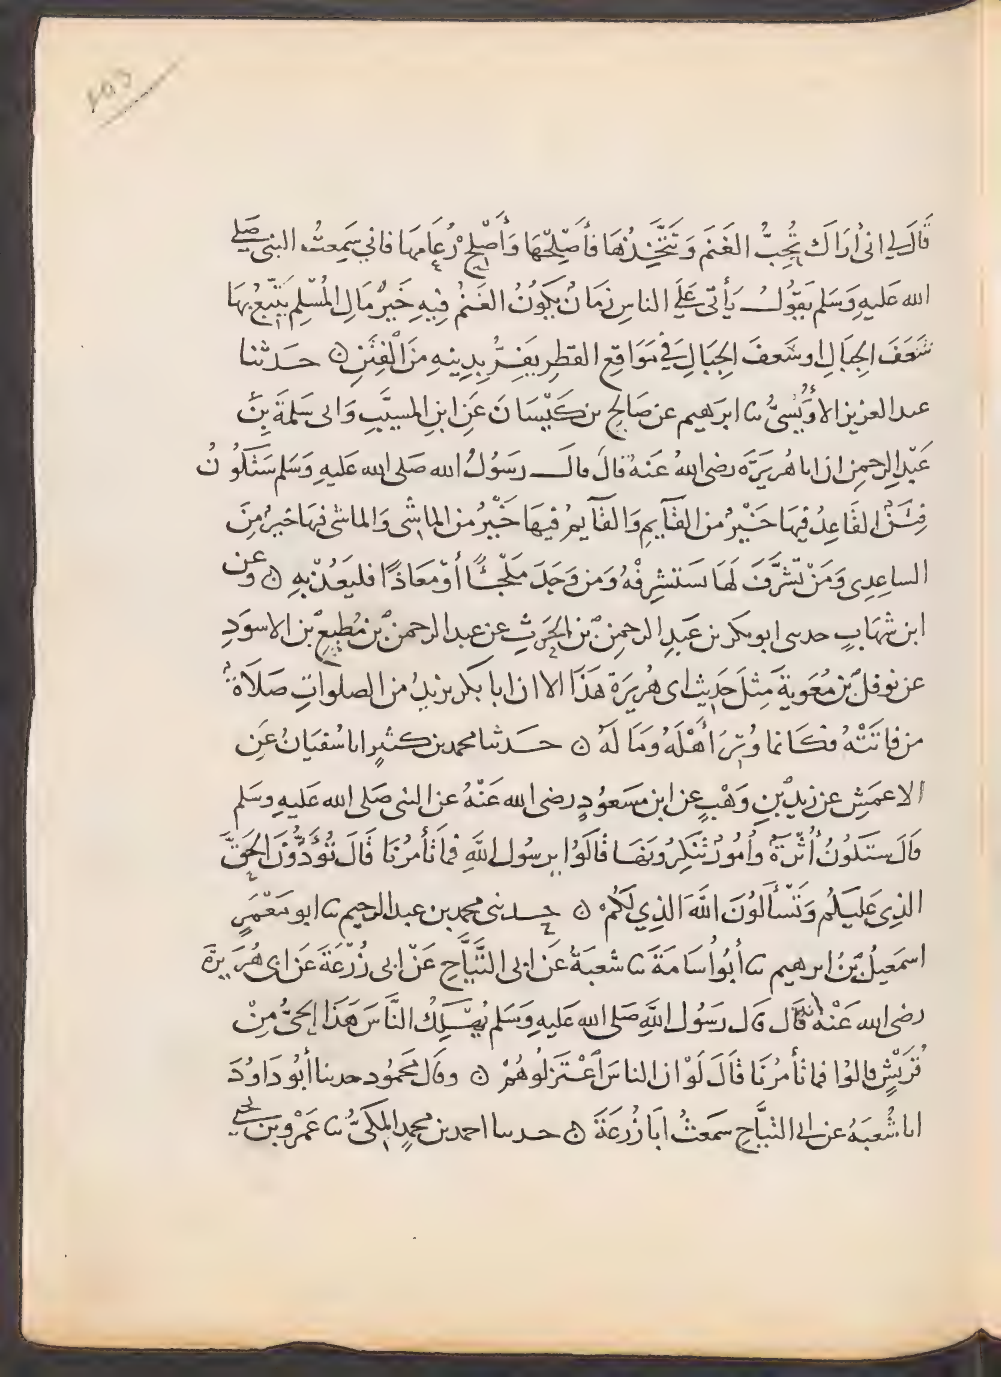 ١٥٣
قَالَ لِي اني أرَاكَ تُحِبُّ الغَنَم وَتَتَّخِذُهَا فأَصْلِحْهَا وَأَصْلِحْ رُعَامَهَا فاني سَمِعتُ النبي صَلى
الله عَليهِ وَسَلم يَقولُ يَأتي عَلَى الناسِ زمَانٌ يَكونُ الغَنَمُ فِيهِ خَيرُ مَالِ المُسْلِمِ يَتْبَعُ بِهَا
شَعَفَ الجبَالِ او سَعفَ الجِبَالِ في مَوَاقِعِ القَطرِ يَفِرُّ بِدِينِهِ مِنَ الفِتَنِ ۞ حَدثنا
عبد العزيز الاوَيْسيُّ ثنا ابرهيم عن صَالحِ بن كَيْسَانَ عَنِ ابنِ المسيَّبِ وَابى سَلمةَ بنِ
عَبْدِ الرحمنِ ان ابا هُرَيرَةَ رضى اللهُ عَنهُ قَالَ قالَ رسَوُلُ الله صَلى الله عَليهِ وَسَلم سَتَكوُنُ
فِتَنٌ القَاعِدُ فِيهَا خَيْرٌ من القَآيمِ وَالقَآيمُ فيهَا خَيْرٌ من الماشى وَالماشى فيهَا خيرٌ مِنَ
الساعِدِى وَمَنْ تَشَرَّفَ لَهَا تَستَشرِفْهُ وَمَن وَجَدَ مَلْجَئًا أوْ مَعَاذًا فليَعُذْ بهِ ۞ وعن
ابن شهَابٍ حدثنى ابو بكر بن عَبدِ الرحمنِ بن الحَرِثِ عن عبد الرحمن بن مُطِيعِ بن الاسوَدِ
عن نوفل بن مُعَويةَ مِثلَ حَدِيثِ ابى هُريرَةَ هَذَا الا ان ابا بكر يزيدُ من الصلواتِ صَلَاةٌ
من فاتَتْهُ فكَانما وُتِرَ أَهْلَهُ وَمَا لَهُ ۞ حَدثنا محمد بن كثيرٍ انا سُفيَانُ عَنِ
الاعمَشِ عن زيدِ بنِ وَهْبٍ عن ابن مسَعُودٍ رضى الله عَنْهُ عن النبى صَلى الله عَليهِ وَسَلم
قَالَ ستَكونُ أُثْرَةٌ وأُمُورٌ تُنكِرُونهَا قَالَوُا يرسُول اللَّهِ فمَا تأمُرُنَا قَالَ تُؤَدُّوُنَ الحَقَّ
الذِى عَليكُم وَتَسْأَلُونَ اللَّهَ الذِي لَكُمْ ۞ حدثنى محمد بن عبد الرحيم ثنا ابو مَعْمَرٍ
اسمَعيلُ بنُ ابرهيم ثنا أبُو أُسَامَةَ ثنا شعبَةُ عَن ابى التَّيَّاحِ عَنْ ابى زُرْعَةَ عَن ابى هُرَيرةَ
رضى الله عَنْهُ قَال قال رسَوُل اللَّهِ صَلى الله عَليهِ وَسَلم يُهْلِكُ النَّاسَ هَذَا الحَىُّ مِنْ
قُرَيْشٍ قالوُا فما تأمُرُنَا قَالَ لَوْ ان الناسَ اعْتَزَلُوهُمْ ۞ وقال محَموُد حدثنا أبُو دَاودَ
انا شُعبَهُ عن ابى التيَّاحِ سَمعتُ ابَا زُرعَةَ ۞ حدثنا احمد بن محمدٍ المكىُّ ثنا عَمْرو بن يحيى